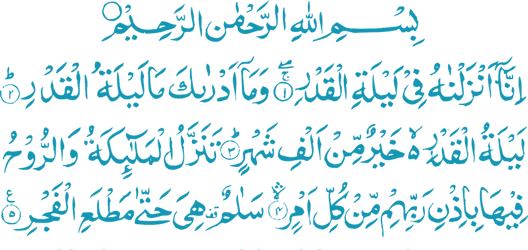 بِسْمِ اللهِ الرَّحْمٰنِ الرَّحِيْمِ
اِنَّاۤ اَنْزَلْنٰهُ فِيْ لَيْلَةِ الْقَدْرِ ۚۖ ﴿۱﴾ وَمَاۤ اَدْرٰىكَ مَا لَيْلَةُ الْقَدْرِ ؕ ﴿۲﴾
لَيْلَةُ الْقَدْرِ ۙ۬ خَيْرٌ مِّنْ اَلْفِ شَهْرٍ ؕ ﴿۳﴾ تَنَزَّلُ الْمَلٰٓئِكَةُ وَالرُّوْحُ
فِيْهَا بِاِذْنِ رَبِّهِمْ مِّنْ كُلِّ اَمْرٍ ۛ ﴿۴﴾ سَلٰمٌ ۛ هِيَ حَتّٰى مَطْلَعِ الْفَجْرِ ﴿۵﴾